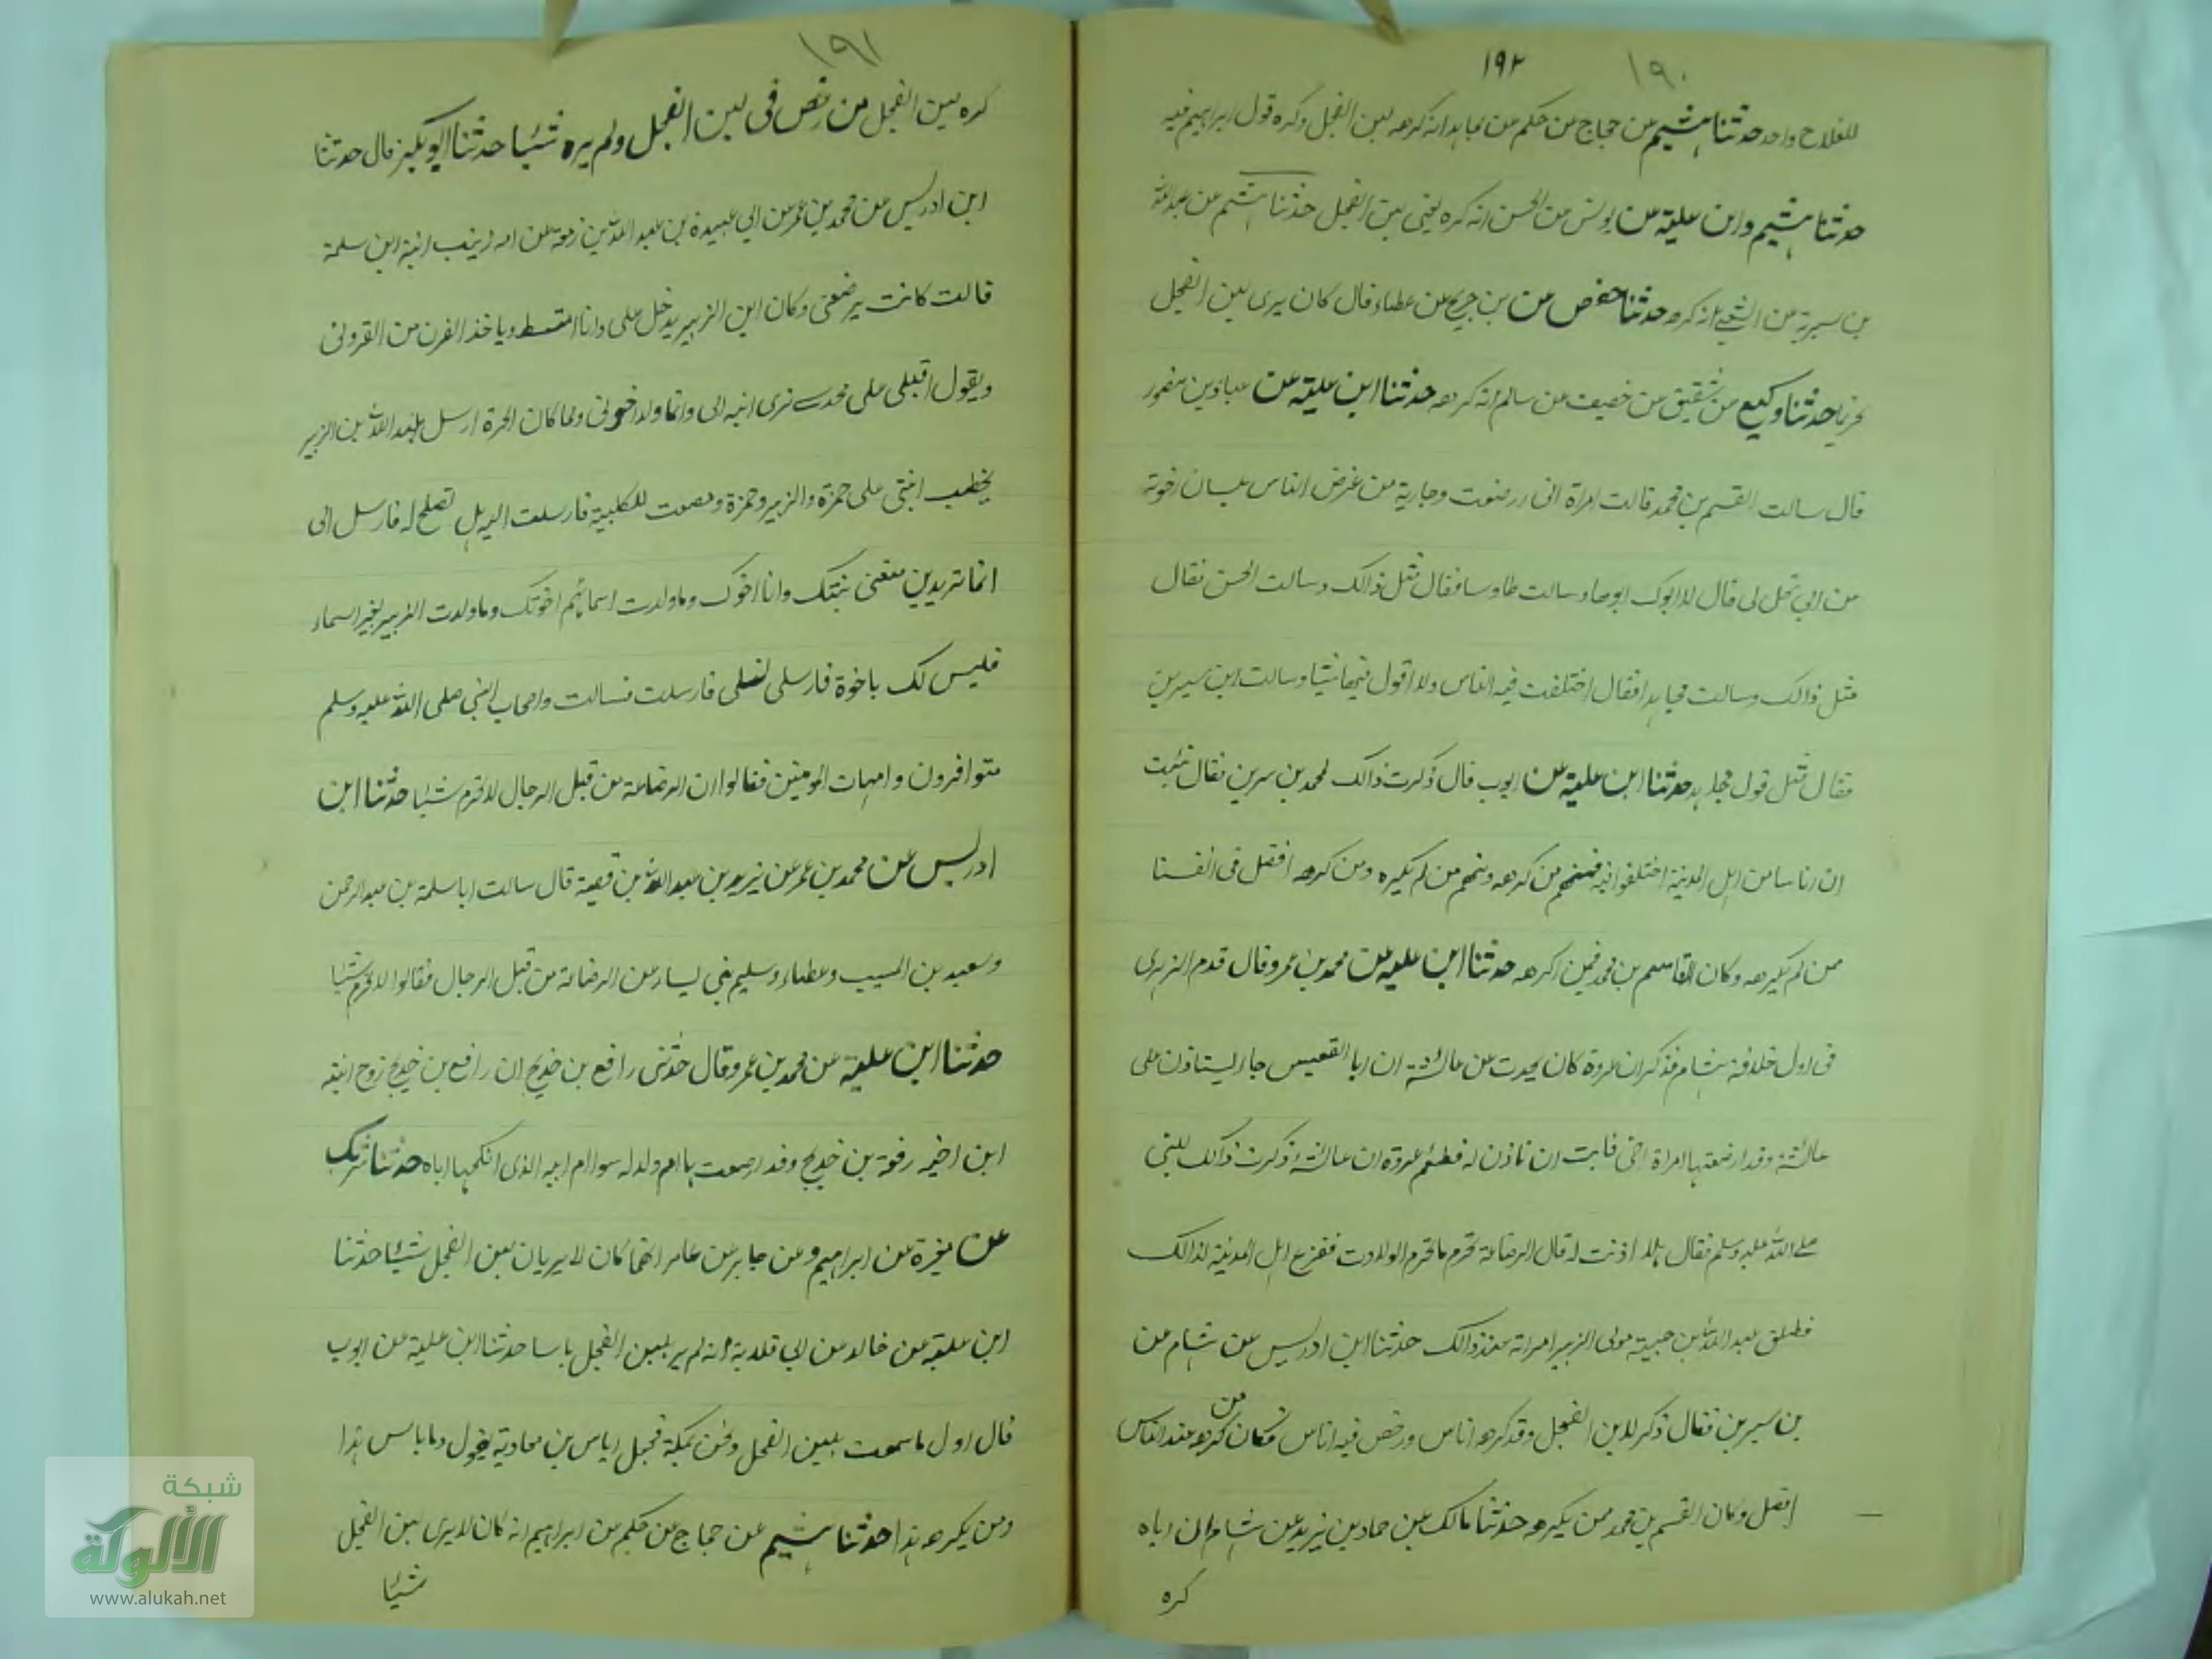 ١٩٢ ١٩٠
للفلاح واحد حدثنا هشيم عن حجاج عن حكم عن مجاهد انه كرهه لبن الفحل وكره قول ابراهيم فيه
حدثنا هشيم وابن علية عن يونس عن الحسن انه كره يعنى لبن الفحل حدثنا هشيم عن عبد الله
بن سبرية عن الشعبى انه كرهه حدثنا حفص عن بن جريج عن عطاء قال كان يرى لبن الفحل
يحرم حدثنا وكيع عن شقيق عن خصيف عن سالم انه كرهه حدثنا ابن علية عن عباد بن منصور
قال سالت القسم بن محمد قالت امراة ابى ارضعت وجارية من عرض الناس بلبان اخوته
من ابى تحل لى قال لا ابوك ابوها وسالت طاوسا فقال مثل ذالك وسالت الحسن فقال
مثل ذالك وسالت مجاهدا فقال اختلفت فيه الناس ولا اقول فيها شيئا وسالت ابن سيرين
فقال مثل قول مجاهد حدثنا ابن علية عن ايوب قال ذكرت ذالك لمحمد بن سرين فقال نبئت
ان اناسا من اهل المدينة اختلفوا فيه فمنهم من كرهه ومنهم من لم يكره ومن كرهه افضل فى انفسنا
ممن لم يكرهه وكان القاسم بن محمد فيمن اكرهه حدثنا ابن علية عن محمد بن عمرو قال قدم الزهرى
فى اول خلافة هشام فذكر ان عروة كان يحدث عن عائشة ان ابا القعيس جاء ليستاذن على
عائشة وقد ارضعتها امراة اخى فابت ان تاذن له فطئم عروة ان عائشة ذكرت ذالك للنبى
صلے الله عليه وسلم فقال هلا اذنت له قال الرضاعة تحرم ما تحرم الولادت ففزع اهل المدينة لذالك
فطلق عبد الله بن حبيبة مولى الزبير امراته عند ذالك حدثنا ابن ادريس عن هشام عن
بن سيرين فقال ذكر لابن الفحل وقد كرهه اناس ورخص فيه اناس فكان من كرهه عند الناس
افضل وكان القسم بن محمد ممن يكرهه حدثنا مالك عن حماد بن يزيد عن هشام ان اباه
كره
١٩١
كره لبن الفحل من رخص فى لبن الفحل ولم يره شيئا حدثنا ابو بكر قال حدثنا
ابن ادريس عن محمد بن عمر عن ابى عبيدة بن عبد الله بن زمعة عن امه زينب ابنة ابن سلمة
قالت كانت يرضعنى وكان ابن الزبير يدخل على وانا امتشط وياخذ القرن من القرونى
ويقول اقبلى على محدے نرى انبه ابى وانما ولد اخوتى ولما كان الحرة ارسل عبد الله بن الزبير
يخطب ابنتى على حمزة والزبير وحمزة ومصعب للكلبية فارسلت اليه هل تصلح له فارسل الى
انما تريدين منعنى بنتك وانا اخوك وما ولدت اسماء هم اخوتك وما ولدت الزبير بغير اسماء
فليس لك باخوة فارسلى لفسلى فارسلت فسالت واصحاب النبى صلى الله عليه وسلم
متوافرون وامهات المومنين فقالوا ان الرضاعة من قبل الرجال لا تحرم شيئا حدثنا ابن
ادريس عن محمد بن عمر عن يزيد بن عبد الله بن قصية قال سالت ابا سلمة بن عبد الرحمن
وسعيد بن المسيب وعطاء وسليم بنى يسار عن الرضاعة من قبل الرجال فقالوا لا تحرم شيئا
حدثنا ابن علية عن محمد بن عمرو قال حدثنى رافع بن خديج ان رافع بن خديج زوج ابنته
ابن اخيه رفوة بن خديج وقد ارضعت ها ام ولد له سوا ام ابيه الذى انكحها اباه حدثنا شريك
عن مغيرة عن ابراهيم وعن جابر عن عامر انهما كان لا يريان بلبن الفحل شيئا حدثنا
ابن علية عن خالد عن ابى قلابة انه لم ير بلبن الفحل باسا حدثنا ابن علية عن ايوب
قال اول ما سمعت بلبن الفحل ونحن بمكة فجعل اياس بن معاوية يقول وما باس هذا
ومن يكرهه هذا حدثنا هشيم عن حجاج عن حكم عن ابراهيم انه كان لا يرى لبن الفحل
شيئا
شبكة
الألوكة
www.alukah.net